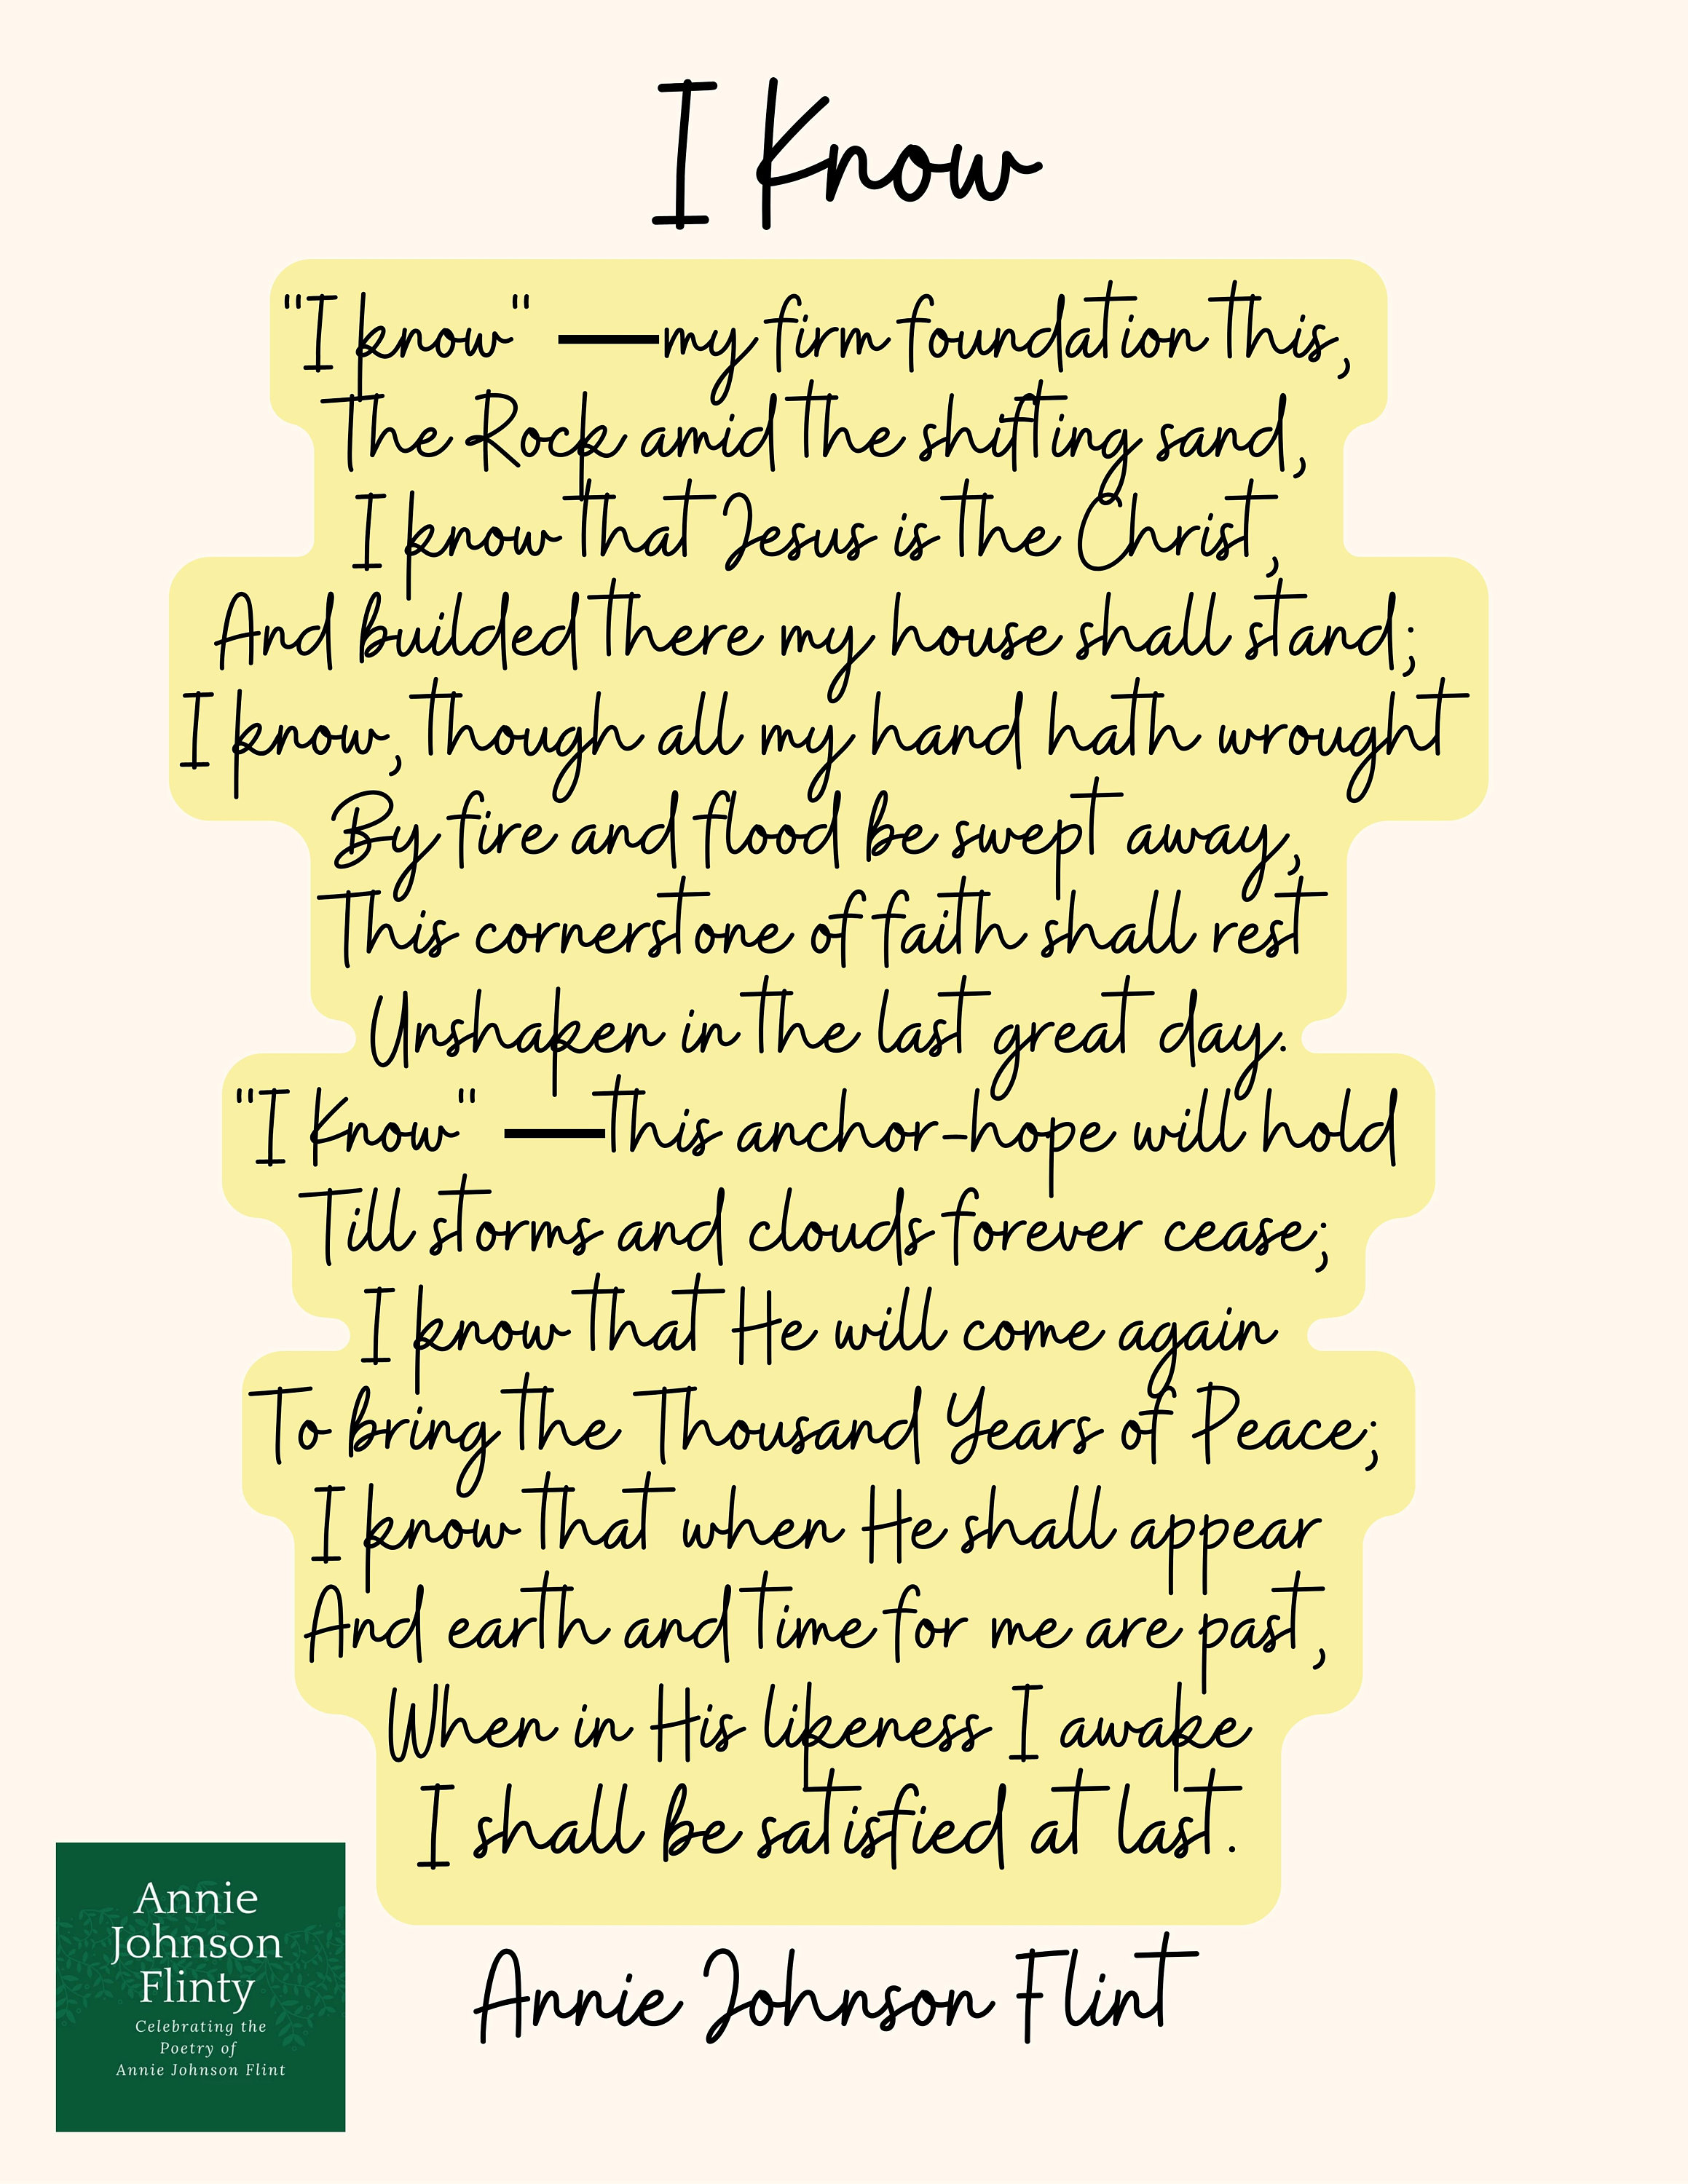 I Know
"I know" —my firm foundation this,
The Rock amid the shifting sand,
I know that Jesus is the Christ,
And builded there my house shall stand;
I know, though all my hand hath wrought
By fire and flood be swept away,
This cornerstone of faith shall rest
Unshaken in the last great day.
"I Know" —this anchor-hope will hold
Till storms and clouds forever cease;
I know that He will come again
To bring the Thousand Years of Peace;
I know that when He shall appear
And earth and time for me are past,
When in His likeness I awake
I shall be satisfied at last.
Annie Johnson Flint
Annie
Johnson
Flinty
Celebrating the
Poetry of
Annie Johnson Flint